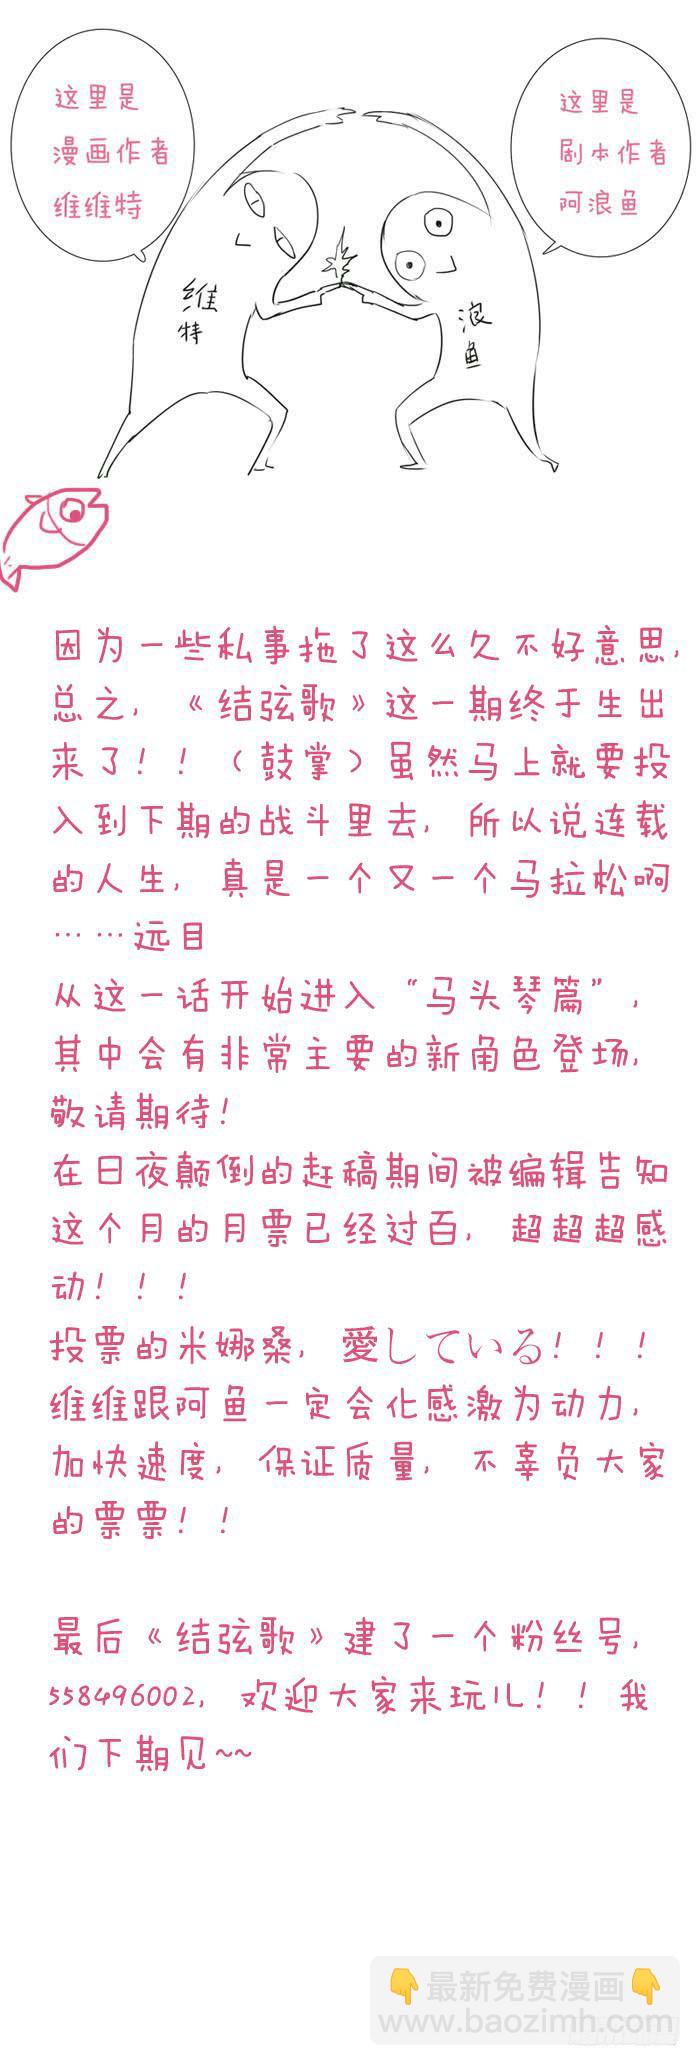 这里是
漫画作者
维维特
这里是
剧本作者
阿浪鱼
维
特
浪
鱼
因为一些私事拖了这么久不好意思,
总之,《结弦歌》这一期终于生出
来了!!(鼓掌)虽然马上就要投
入到下期的战斗里去,所以说连载
的人生,真是一个又一个马拉松啊
……远目
从这一话开始进入“马头琴篇”,
其中会有非常主要的新角色登场,
敬请期待!
在日夜颠倒的赶稿期间被编辑告知
这个月的月票已经过百,超超超感
动!!!
投票的米娜桑,愛している!!!
维维跟阿鱼一定会化感激为动力,
加快速度,保证质量,不辜负大家
的票票!!
最后《结弦歌》建了一个粉丝号,
558496002,欢迎大家来玩儿!!我
们下期见~~
最新免费漫画
www.baozimh.com